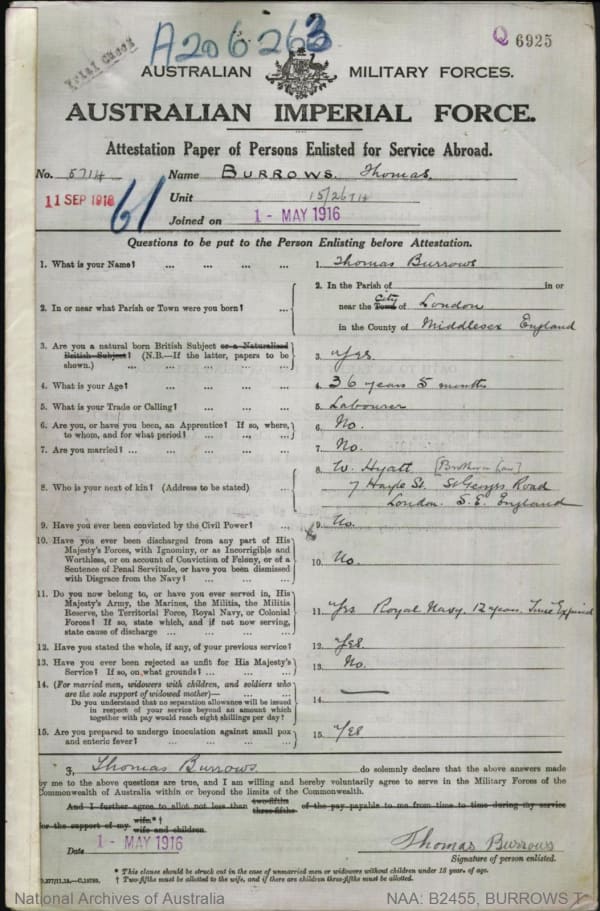 A206263
Q 6925
AUSTRALIAN MILITARY FORCES.
AUSTRALIAN IMPERIAL FORCE.
Attestation Paper of Persons Enlisted for Service Abroad.
No. 5714 Name BURROWS. Thomas.
11 SEP 1918 61 Unit 15/26714
Joined on 1 - MAY 1916
Questions to be put to the Person Enlisting before Attestation.
1. What is your Name? ... ... ... ... 1. Thomas Burrows
2. In or near what Parish or Town were you born? ... 2. In the Parish of in or
near the Town City of London
in the County of Middlesex England
3. Are you a natural born British Subject or a Naturalized
British Subject? (N.B.—If the latter, papers to be
shown.) ... ... ... ... 3. Yes
4. What is your Age? ... ... ... ... 4. 36 years 5 months
5. What is your Trade or Calling? ... ... ... 5. Labourer
6. Are you, or have you been, an Apprentice? If so, where,
to whom, and for what period? ... ... ... 6. No.
7. Are you married? ... ... ... ... 7. No.
8. Who is your next of kin? (Address to be stated) ... 8. W. Hyatt [Brother in Law]
7 Hayle St. St Georges Road
London. S.E. England
9. Have you ever been convicted by the Civil Power? ... 9. No.
10. Have you ever been discharged from any part of His
Majesty's Forces, with Ignominy, or as Incorrigible and
Worthless, or on account of Conviction of Felony, or of a
Sentence of Penal Servitude, or have you been dismissed
with Disgrace from the Navy? ... ... ... 10. No.
11. Do you now belong to, or have you ever served in, His
Majesty's Army, the Marines, the Militia, the Militia
Reserve, the Territorial Force, Royal Navy, or Colonial
Forces? If so, state which, and if not now serving,
state cause of discharge ... ... ... 11. Yes Royal Navy. 12 years. Time Expired
12. Have you stated the whole, if any, of your previous service? 12. Yes.
13. Have you ever been rejected as unfit for His Majesty's
Service? If so, on what grounds? ... ... ... 13. No.
14. (For married men, widowers with children, and soldiers who
are the sole support of widowed mother)—
Do you understand that no separation allowance will be issued
in respect of your service beyond an amount which
together with pay would reach eight shillings per day? 14. —
15. Are you prepared to undergo inoculation against small pox
and enteric fever? ... ... ... ... 15. Yes
I, Thomas Burrows. do solemnly declare that the above answers made
by me to the above questions are true, and I am willing and hereby voluntarily agree to serve in the Military Forces of the
Commonwealth of Australia within or beyond the limits of the Commonwealth.
And I further agree to allot not less than two-fifths three-fifths of the pay payable to me from time to time during my service
for the support of my wife*† wife and children.
Date 1 - MAY 1916 Thomas Burrows
Signature of person enlisted.
* This clause should be struck out in the case of unmarried men or widowers without children under 18 years of age.
† Two-fifths must be allotted to the wife, and if there are children three-fifths must be allotted.
National Archives of Australia NAA: B2455, BURROWS T